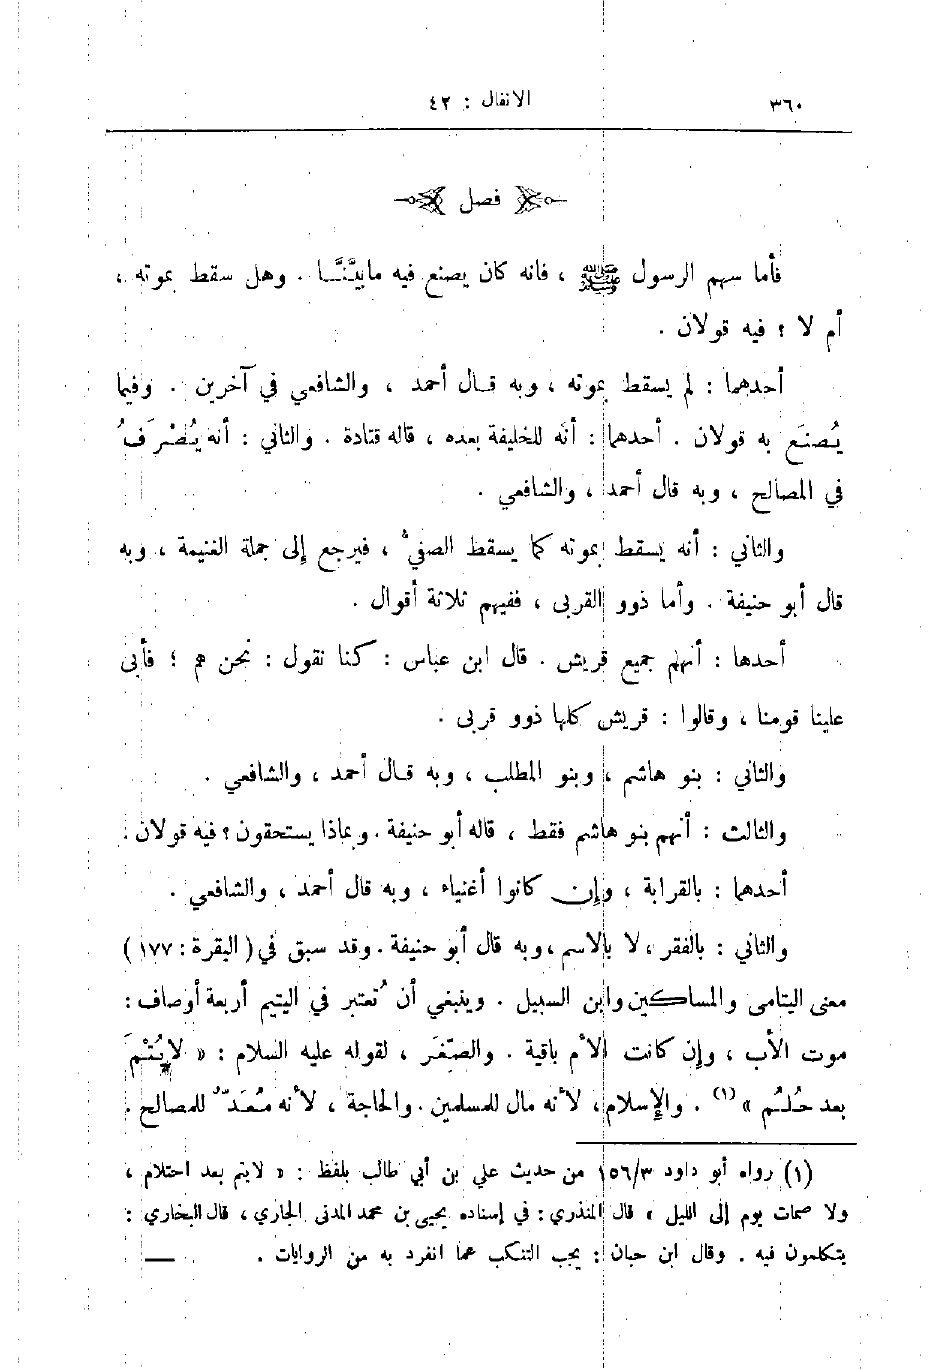 ٣٦٠
الانفال : ٤٢
فصل
فأما سهم الرسول ﷺ ، فانه كان يصنع فيه ما بيَّنَّا . وهل سقط بموته ،
أم لا ؟ فيه قولان .
أحدهما : لم يسقط بموته ، وبه قال أحمد ، والشافعي في آخرين . وفيما
يُصنَع به قولان . أحدهما : أنه للخليفة بعده ، قاله قتادة . والثاني : أنه يُصْرَفُ
في المصالح ، وبه قال أحمد ، والشافعي .
والثاني : أنه يسقط بموته كما يسقط الصفيُّ ، فيرجع إلى جملة الغنيمة ، وبه
قال أبو حنيفة . وأما ذوو القربى ، ففيهم ثلاثة أقوال .
أحدها : أنهم جميع قريش . قال ابن عباس : كنا نقول : نحن هم ؛ فأبى
علينا قومنا ، وقالوا : قريش كلها ذوو قربى .
والثاني : بنو هاشم ، وبنو المطلب ، وبه قال أحمد ، والشافعي .
والثالث : أنهم بنو هاشم فقط ، قاله أبو حنيفة . وبماذا يستحقون ؟ فيه قولان :
أحدهما : بالقرابة ، وإن كانوا أغنياء ، وبه قال أحمد ، والشافعي .
والثاني : بالفقر ، لا بالاسم ، وبه قال أبو حنيفة . وقد سبق في ( البقرة : ١٧٧ )
معنى اليتامى والمساكين وابن السبيل . وينبغي أن تُعتبر في اليتيم أربعة أوصاف :
موت الأب ، وإن كانت الأم باقية . والصّغَر ، لقوله عليه السلام : « لا يُتْمَ
بعد حُلُم » (١) . والإسلام ، لأنه مال للمسلمين . والحاجة ، لأنه مُعَدٌّ للمصالح .
(١) رواه أبو داود ١٥٦/٣ من حديث علي بن أبي طالب بلفظ : « لا يتم بعد احتلام ،
ولا صمات يوم إلى الليل ، قال المنذري : في إسناده يحيى بن محمد المدني الجاري ، قال البخاري :
يتكلمون فيه . وقال ابن حبان : يجب التنكب عما انفرد به من الروايات .